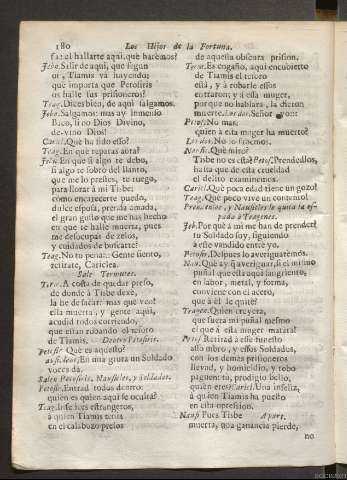 180 Los Hijos de la Fortuna.
faz el hallarte aqui, què harèmos?
Jeb. Salir de aqui, que segun
oì, Tiamis và huyendo;
què importa que Petosiris
os halle sus prisioneros?
Teag. Dices bien, de aqui salgamos.
Salgamos: mas ay inmenso
Baco, si no Dios Divino,
de-vino Dios!
Caricl. Què ha sido esso?
Teag. En què reparas aora?
Jeb. En que si algo te debo,
si algo te sobró del llanto,
que me lo prestes, te ruego,
para llorar à mi Tisbe:
como encarecerte puedo,
dulce esposa, prenda amada,
el gran gusto que me has hecho
en que te halle muerta, pues
me desocupas de zelos,
y cuidados de buscarte?
Teag. No tu pena: Gente siento,
retirate, Cariclea.
Sale Termutes.
Term. A costa de quedar preso,
de donde à Tisbe dexè,
la he de sacar: mas què veo!
ella muerta, y gente aqui,
acudid todos corriendo,
que estàn robando el tesoro
de Tiamis. Dentro Petosiris.
Petosir. Què es aquello?
Soldado. En una gruta un Soldado
voces dà.
Salen Petosiris, Nausicles, y Soldados.
Petosir. Entrad todos dentro:
quien es quien aqui se oculta?
Teag. Infelices estrangeros,
à quien Tiamis tenia
en el calabozo presos
de aquesta obscura prision.
Term. Es engaño, aqui encubierto
de Tiamis el tesoro
està, y à robarle estos
entraron; y à essa muger,
porque no hablàra, la dieron
muerte. Los dos. Señor yo:-
Petos. No mas:
quien à esta muger ha muerto?
Los dos. No lo sabemos.
Nausic. Què miro?
Tisbe no es esta? Petos. Prendedlos,
hasta que de esta crueldad
el delito examinemos.
Caricl. Què poca edad tiene un gozo!
Teag. Què poco vive un contento!
Prendenlos, y Nausicles le quita la espada
à Teagenes.
Jeb. Por què à mi me han de prender?
tu Soldado soy, siguiendo
à este vandido entrè yo.
Petosir. Despues lo averiguarèmos.
Nau. Què ay què averiguar, si el mismo
puñal que està aqui sangriento,
en labor, metal, y forma,
conviene con el acero,
que à èl le quitè?
Teagen. Quien creyera,
que fuera mi puñal mesmo
el que à esta muger matàra!
Petos. Retirad à esse funesto
assombro, y essos Soldados,
con los demàs prisioneros
llevad, y homicidio, y robo
paguen: tù, prodigio bello,
quien eres? Caricl. Una infeliz,
à quien Tiamis ha puesto
en esta opression.
Naus. Pues Tisbe A part.
muerta, una ganancia pierde,
no